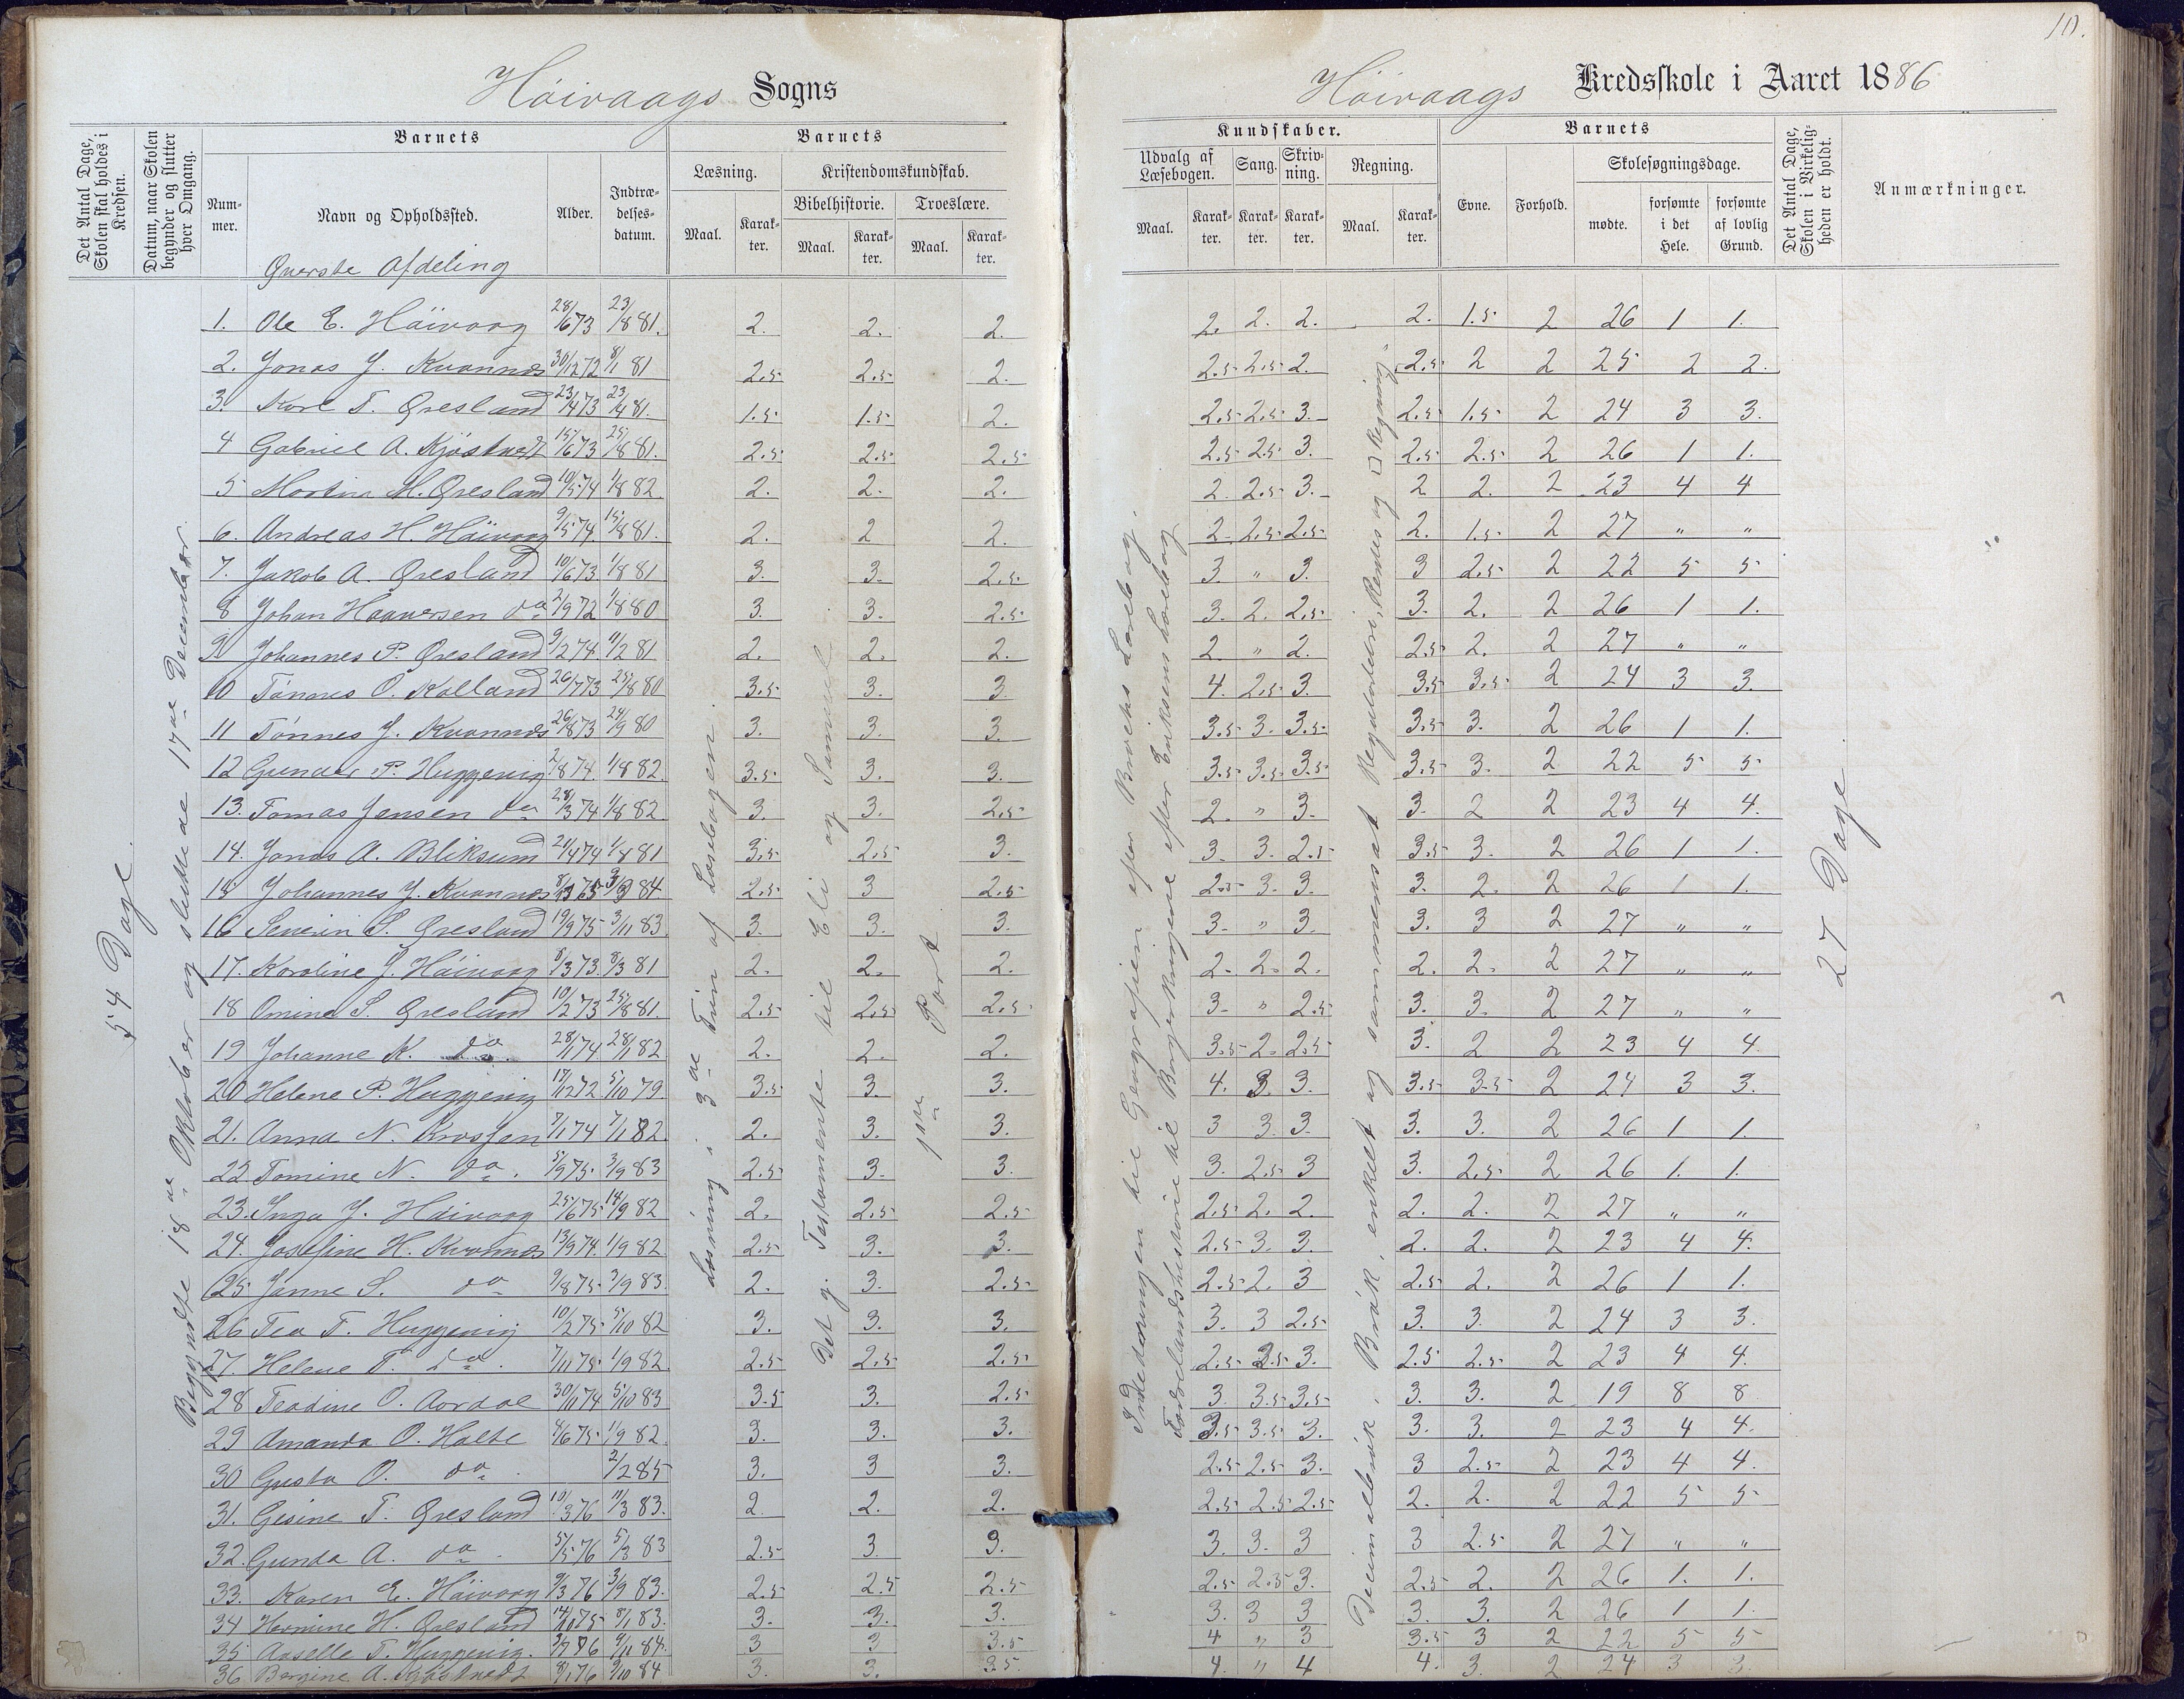 10.
Höivaags Sogns
Höivaags Kredsskole i Aaret 1886
Det Antal Dage, Skolen skal holdes i Kredsen.
Datum, naar Skolen begynder og slutter hver Omgang.
Barnets
Nummer.
Navn og Opholdssted.
Alder.
Indtrædelsesdatum.
Barnets
Læsning.
Kristendomskundskab.
Bibelhistorie.
Troeslære.
Maal. Karakter. Maal. Karakter. Maal. Karakter.
Kundskaber.
Udvalg af Læsebogen.
Sang.
Skrivning.
Regning.
Maal. Karakter. Karakter. Karakter. Maal. Karakter.
Barnets
Evne.
Forhold.
Skolesøgningsdage.
mødte.
forsømte i det Hele.
forsømte af lovlig Grund.
Det Antal Dage, Skolen i Virkeligheden er holdt.
Anmærkninger.
Øverste Afdeling
54 Dage.
Begyndte 18de Oktober og sluttede 17de December.
Læsning i 3de Trin af Læsebogen.
Det g. Testamente til Eli og Samuel
1ste Part
Inledningen til Geografien efter Læsebog.
Fædrelandshistorie til Borgerkrigene efter Eriksens Læsebog
Decimalbrøk, Brøk, enkelt og sammensat Regulaletri, Rentes og □ Regning.
27 Dage
1. Ole E. Höivaag 28/6 73 23/8 81. 2. 2. 2. 2. 2. 2. 2. 1.5 2 26 1 1.
2. Jonas J. Kvannes 30/12 72 8/1 81 2.5 2.5 2. 2.5 2.5 2. 2.5 2 2 25 2 2.
3. Karl T. Øresland 23/4 73 23/4 81. 1.5 1.5 2. 2.5 2.5 3. 2.5 1.5 2 24 3 3.
4 Gabriel A. Kjöstvedt 15/6 73 25/8 81. 2.5 2.5 2.5 2.5 2.5 3. 2.5 2.5 2 26 1 1.
5 Martin M. Øresland 10/5 74 1/8 82 2. 2. 2. 2. 2.5 3. 2 2. 2 23 4 4
6. Andreas H. Höivaag 9/5 74. 15/8 81. 2. 2 2. 2. 2.5 2.5 2. 1.5 2 27 " "
7. Jakob A. Øresland 10/6 73 1/8 81 3. 3. 2.5 3. " 3. 3 2.5 2 22 5 5
8 Johan Haaversen do 2/9 72 1/8 80 3. 3. 2.5 3. 2. 2.5 3. 2. 2 26 1 1.
9 Johannes P. Øresland 9/2 74. 11/2 81 2. 2. 2. 2. " 2. 2.5 2. 2 27 " "
10 Tönnes O. Kalland 26/7 73 25/8 80 3.5 3. 3. 4. 2.5 3. 3.5 3.5 2 24 3 3.
11 Tönnes J. Kvannes 26/8 73 24/9 80 3. 3. 3. 3.5 3. 3.5 3.5 3. 2 26 1 1.
12 Gunder P. Huggenig 2/8 74. 1/8 82. 3.5 3. 3. 3.5 3.5 3.5 3.5 3. 2 22 5 5
13. Tomas Jensen do 28/3 74 1/8 82. 3. 3. 2.5 2. " 3. 3. 2 2 23 4 4.
14. Jonas A. Bliksund 21/4 74 1/8 81 3.5 2.5 3. 3. 3. 2.5 3.5 3. 2 26 1 1.
15 Johannes J. Kvannes 2.5 3 2.5 2.5 3. 3. 3. 2. 2 26 1 1.
16 Severin S. Øresland 19/9 75 3/11 83. 3. 3. 3. 3. " 3. 3. 3 2 27 " "
17. Karoline J. Höivaag 8/3 73. 8/3 81 2. 2. 2. 2. 2. 2. 2. 2. 2 27 " "
18 Omine S. Øresland 10/2 73 25/8 81. 2.5 2.5 2.5 3. " 2.5 3. 3. 2 27 " "
19 Johanne K. do. 28/1 74 28/1 82 2. 2. 2. 3.5 2. 2.5 3. 2 2 23 4 4.
20 Helene P. Huggenig 17/12 72 5/10 79. 3.5 3. 3. 4. 3. 3. 3.5 3.5 2 24 3 3.
21. Anna N. Krosjen 7/1 74 7/1 82. 2. 3. 3. 3 3. 3. 3. 3. 2 26 1 1.
22 Tomine N. do. 5/9 75. 3/9 83 2.5 3. 3. 3. 2.5 3 3. 2.5 2 26 1. 1.
23. Inga J. Höivaag 25/6 75 14/9 82 2. 2.5 2.5 2.5 2. 2. 2. 2. 2 27 " "
24. Josefine H. Kvannes 13/9 74. 1/9 82 2.5 3. 3. 2.5 3. 3. 2. 2. 2 23 4 4.
25 Janne S. do 9/8 75. 3/9 83. 2. 3. 2.5 2.5 2. 3 2.5 2. 2 26 1 1.
26 Tea T. Huggenig 10/2 75. 5/10 82 3. 3. 3. 3. 3 2.5 3. 3. 2 24 3 3.
27. Helene T. do. 7/11 75. 1/9 82. 2.5 2.5 2.5 2.5 2.5 3. 2.5 2.5 2 23 4 4.
28 Teodine O. Aardal 30/11 74 5/10 83 3.5 3. 2.5 3. 3.5 3.5 3. 3. 2 19 8 8
29 Amanda O. Holte 4/6 75. 1/9 82. 3. 3. 3. 3.5 3.5 3. 3. 3. 2 23 4 4.
30 Gusta O. do 2/2 85 3. 3 3. 2.5 2.5 3. 3 2.5 2 23 4 4.
31. Gesine T. Øresland 10/3 76 11/3 83. 2 2. 2. 2.5 2.5 2.5 2. 2. 2 22 5 5
32. Gunda A. do 5/5 76 5/3 83 2.5 3. 3. 3. 3. 3 3 2.5 2 27 " "
33. Karen E. Höivaag 9/3 76 3/9 83. 2.5 2.5 2.5 2.5 2.5 3. 2.5 2. 2 26 1. 1.
34 Hermine H. Øresland 14/10 75 8/1 83. 3. 3. 3. 3. 3 3 3. 3. 2 26 1 1.
35 Aaselle T. Huggenig. 9/11 84. 3 3 3.5 4 " 3 3.5 3 2 22 5 5
36 Bergine A. Kjöstvedt 8/1 76 9/10 84 3. 3. 3.5. 4. " 4 4. 3. 2 24 3 3.